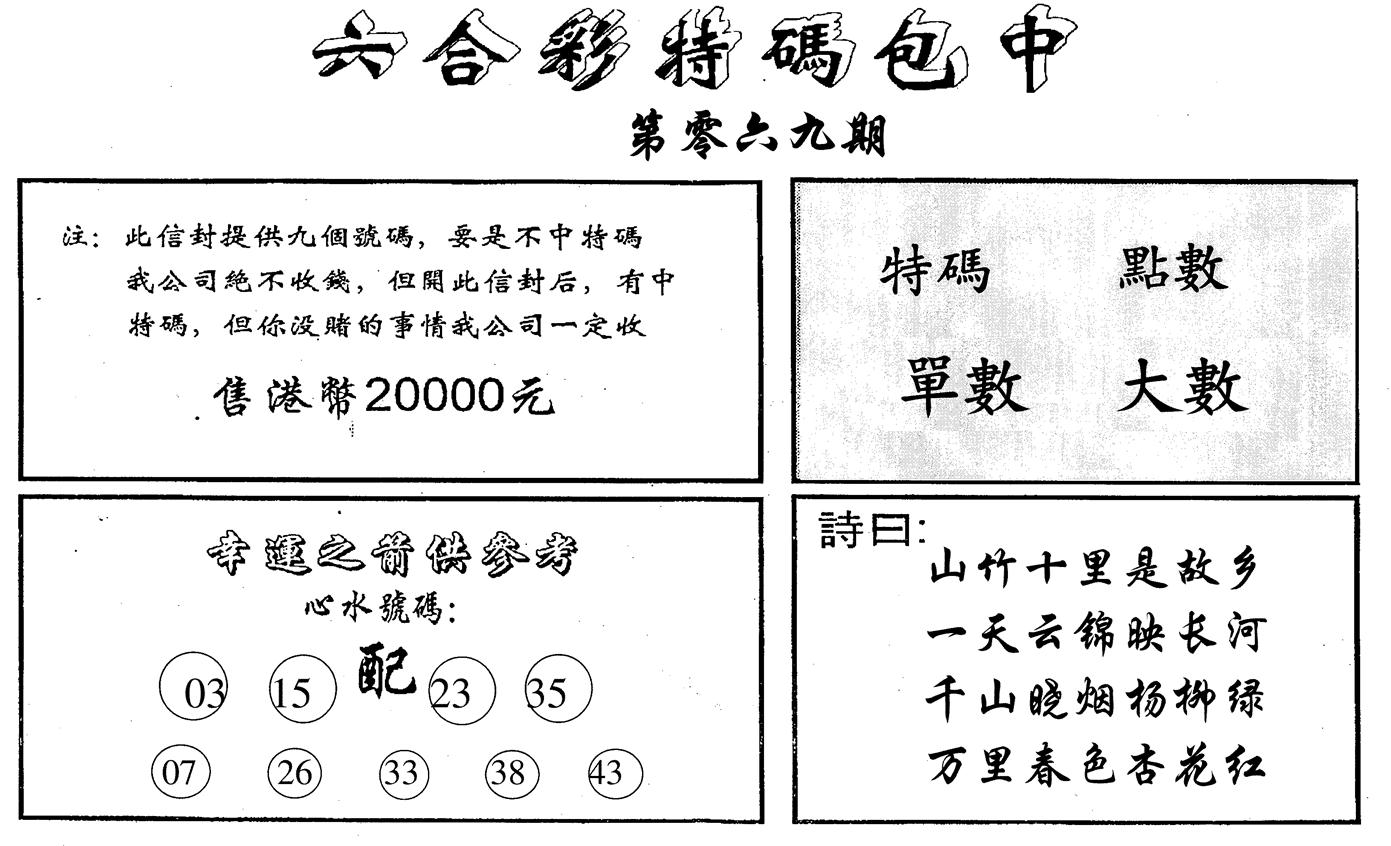 六合彩特碼包中
第零六九期
注：此信封提供九個號碼，要是不中特碼
我公司絶不收錢，但開此信封后，有中
特碼，但你没賭的事情我公司一定收
售港幣20000元
特碼 點數
單數 大數
幸運之箭供參考
心水號碼：
03 15 配 23 35
07 26 33 38 43
詩曰：
山竹十里是故乡
一天云锦映长河
千山晓烟杨柳绿
万里春色杏花红